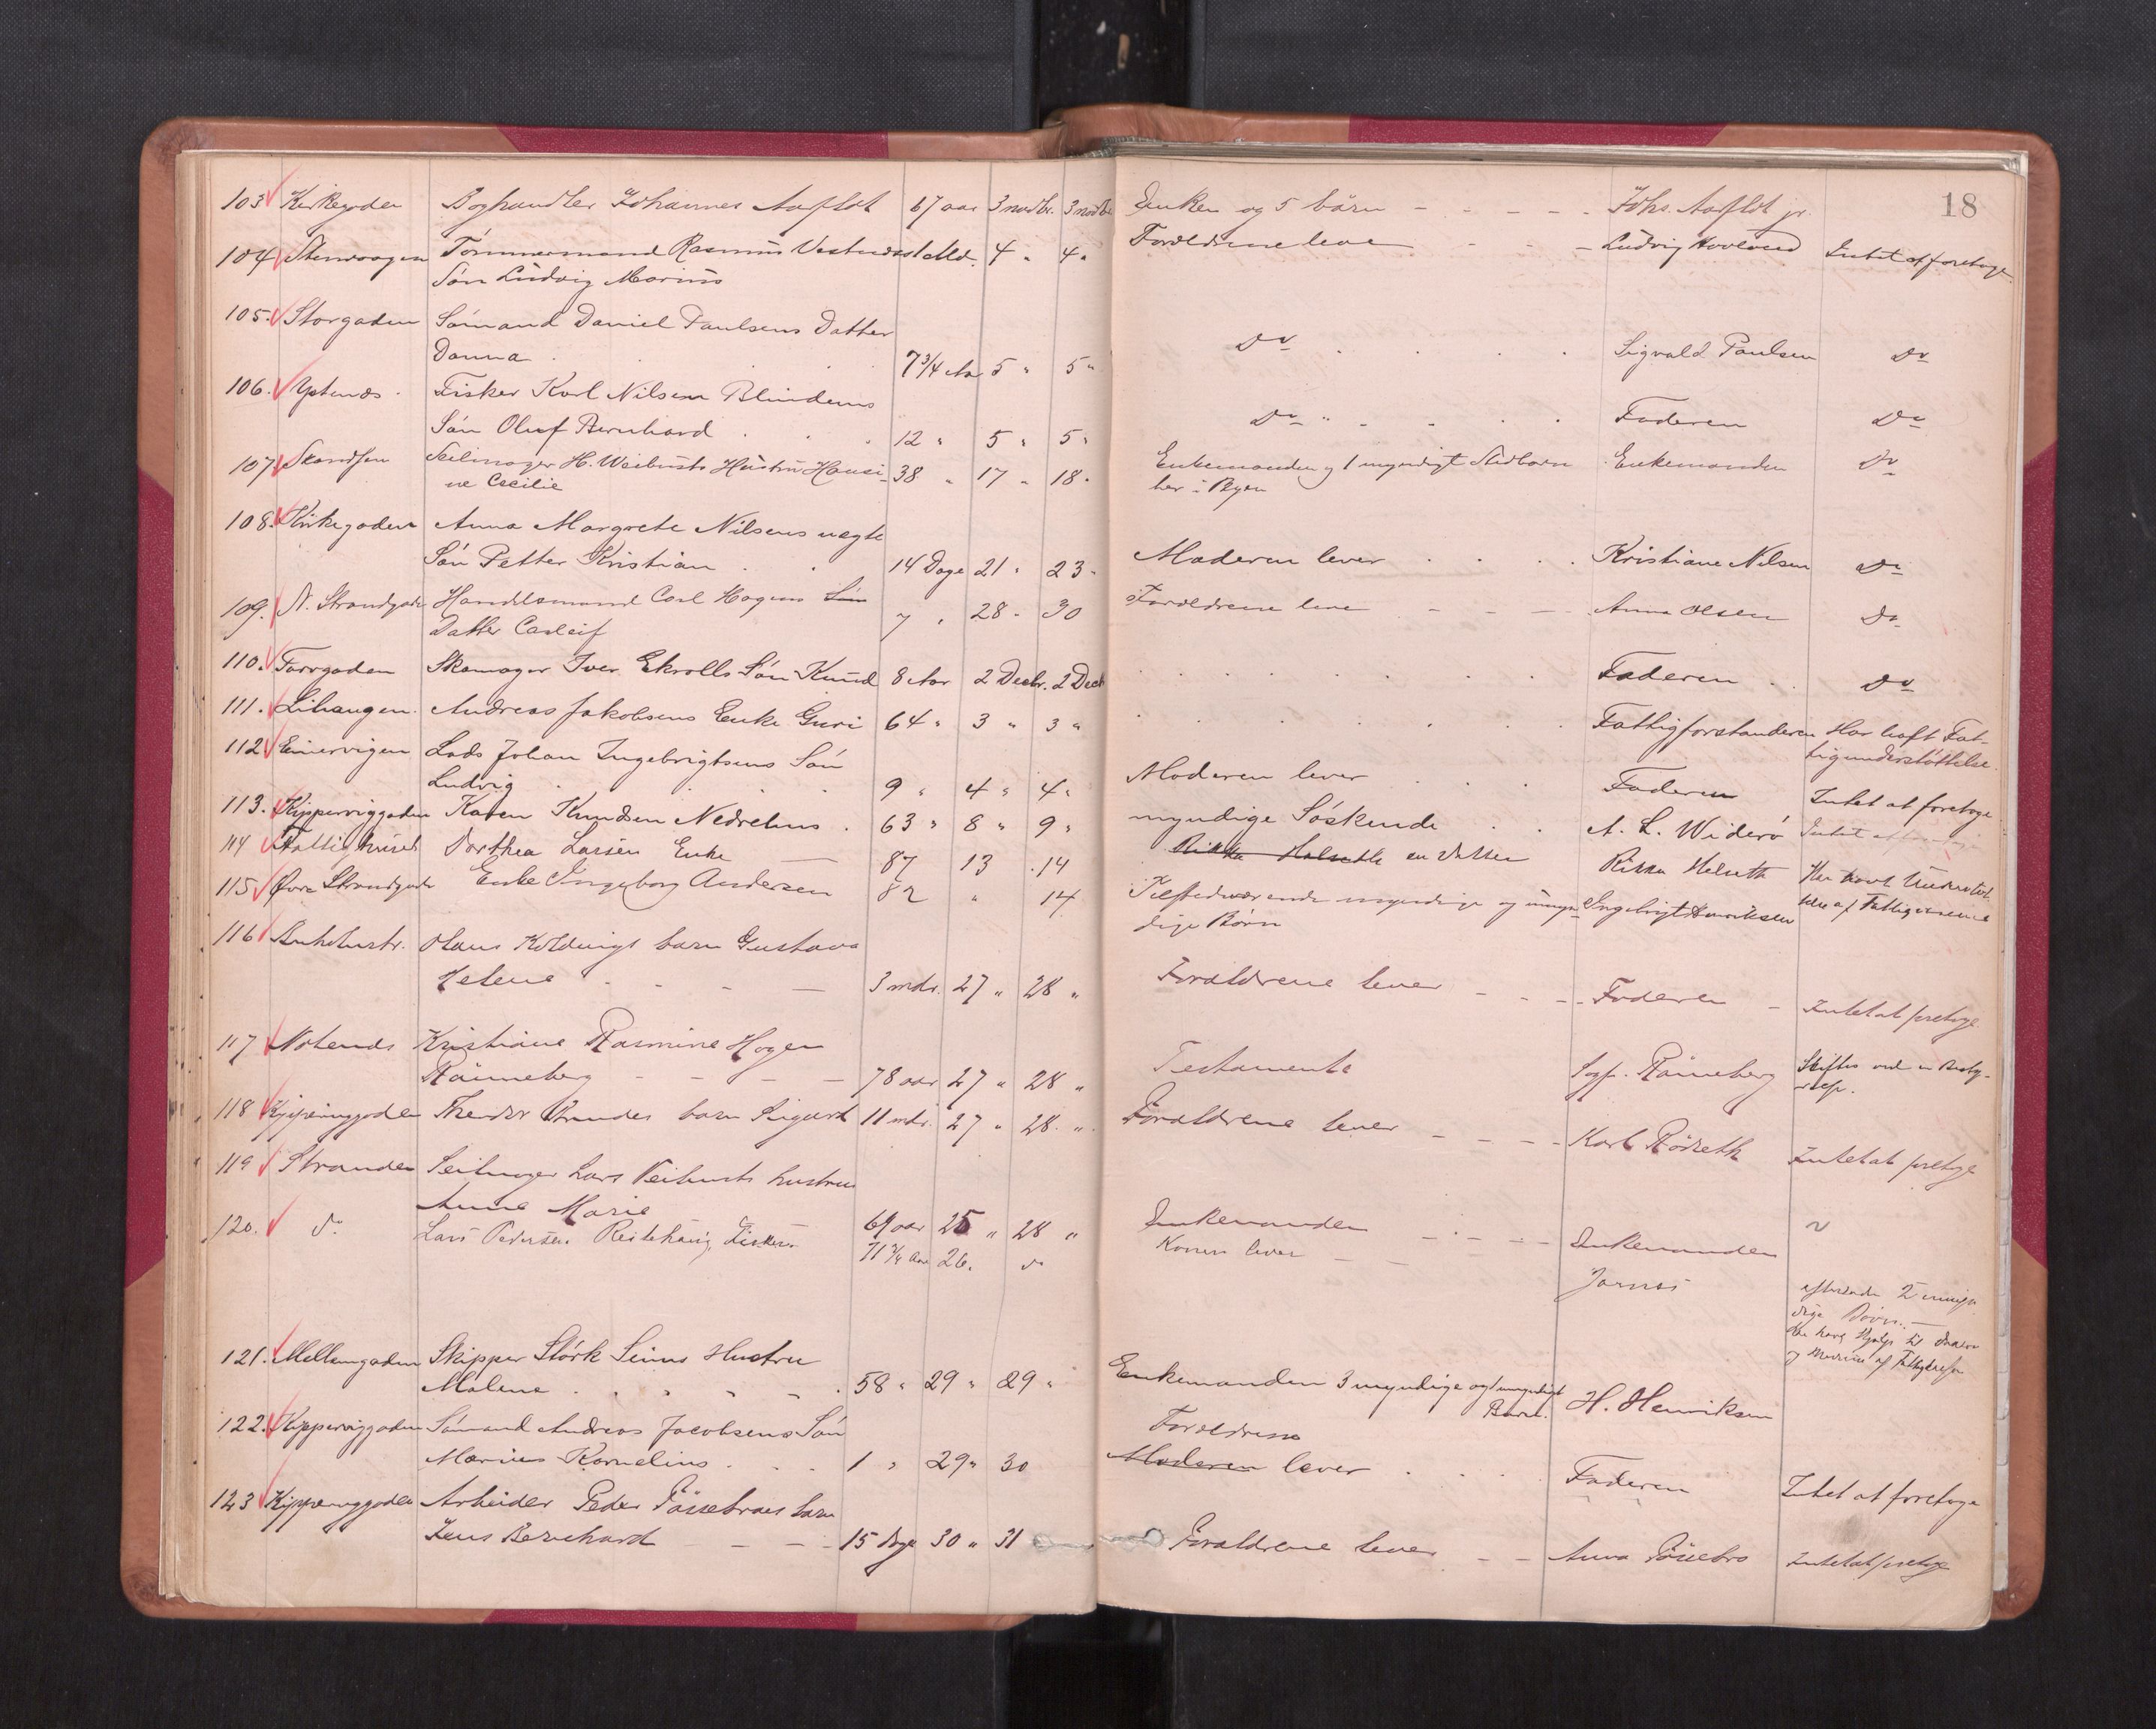 18
103 Kirkegaden Boghandler Johannes Aarflot 67 aar 3 novbr. 3 novbr. Enken og 5 børn - - - - - Johs. Aarflot jr.
104 Stenvaagen Tømmermand Rasmus 4 " 4 " Forældrene leve - - - Ludvig Intet at foretage
Søn Ludvig Marius
105. Storgaden Sømand Daniel Paulsens Datter
Danna . . . 7 3/4 Aar 5 " 5 " Do . . . . Sigvald Paulsen Do
106. Ystenes . Fisker Karl Nilsen Blindems
Søn Oluf Bernhard . . . 12 " 5 " 5 " Do " - - . . Faderen Do
107 Skandsen Seilmager H. Weibusts Hustru Hansi- 38 " 17 " 18 " Enkemanden og 1 myndigt Stedbarn Enkemanden Do
ne Cecilie her i Byen
108. Kirkegaden Anna Margrete Nilsens uægte
Søn Petter Kristian . . 14 Dage 21 " 23 - Moderen lever . . . . Kristiane Nilsen Do
109. N. Strandgade Handelsmand Carl Hagens Søn 7 " 28 - 30 Forældrene leve - - - Anna Olsen Do
Datter Carleif
110. Torvgaden Skomager Iver Ekrolls Søn Knud 8 Aar 2 Decbr. 2 Decb . . . . . . . Faderen . . Do
111. Lihaugen. Andreas Jakobsens Enke Guri 64 " 3 " 3 " . . . . . . . Fattigforstanderen Har havt Fat-
tigunderstøttelse.
112 Lods Johan Ingebrigtsens Søn
Ludvig . . . 9 " 4 " 4 " Moderen lever . . . Faderen Intet at foretage
113. Kipperviggaden Karen Knudsen Nedrelius . 63 " 8 " 9 " myndige Søskende . . A. L. Widerø Intet at
114 Fattighuset Dorthea Larsen Enke — 87 13 . 14 Rikka Helseth en datter Rikka Helseth Har havt Understøt
telse af Fattigvæsenet
115 Øvre Strandgade Enke Ingeborg Andersen 82 " 14 Tilstedeværende myndige og umyn- Ingebrigt Henriksen
dige Børn
116 Olaus Koldings barn Gustava
Helene - - - — 3 mdr. 27 " 28 " Forældrene lever - - - Faderen - Intet at foretage
117 Notenæs Kristiane Rasmine Hagen
Rønneberg - - - — 78 aar 27 " 28 " Testamente Sogp. Rønneberg Skiftes ved
118 Kipperviggaden Theodor barn Sigurd 11 mdr. 27 " 28 " Forældrene lever - - - - Karl Rødseth Intet at foretage
119 Stranden Seilmager Lars Veibusts hustru
Anne Marie 69 aar 25 " 28 " Enkemanden - - - - Enkemanden
120. do Lars Pedersen Fisker 71 3/4 aar 26. do Konen lever - - efterlader 2 umyn
dige Børn. —
Har havt Hjælp til
og Medicin af
121. Mellemgaden Skipper Størk Hustru
Malene . . . - - . 58 " 29 " 29 " Enkemanden 3 myndige og 1 umyndigt H. Henriksen
Barn.
122. Kipperviggaden Sømand Andreas Jacobsens Søn Forældrene
Marius Kornelius . - . 1 " 29 " 30 Moderen lever . . . . Faderen Intet at foretage
123 Kipperviggaden Arbeider Peder barn
Jens Bernhard - - - 15 dage 30 " 31 Forældrene lever - - Anna Intet at foretage